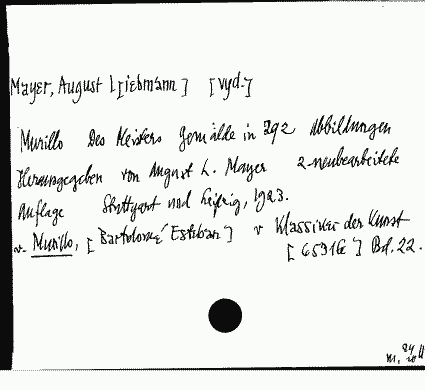 Mayer, August L[iebmann] [vyd.]
Murillo Des Meisters Gemälde in 292 Abbildungen
Herausgegeben von August L. Mayer 2-neubearbeitete
Auflage Stuttgart und Leipzig, 1923.
v. Murillo, [Bartolomé Esteban] v Klassiker der Kunst
[65916] Bd. 22.